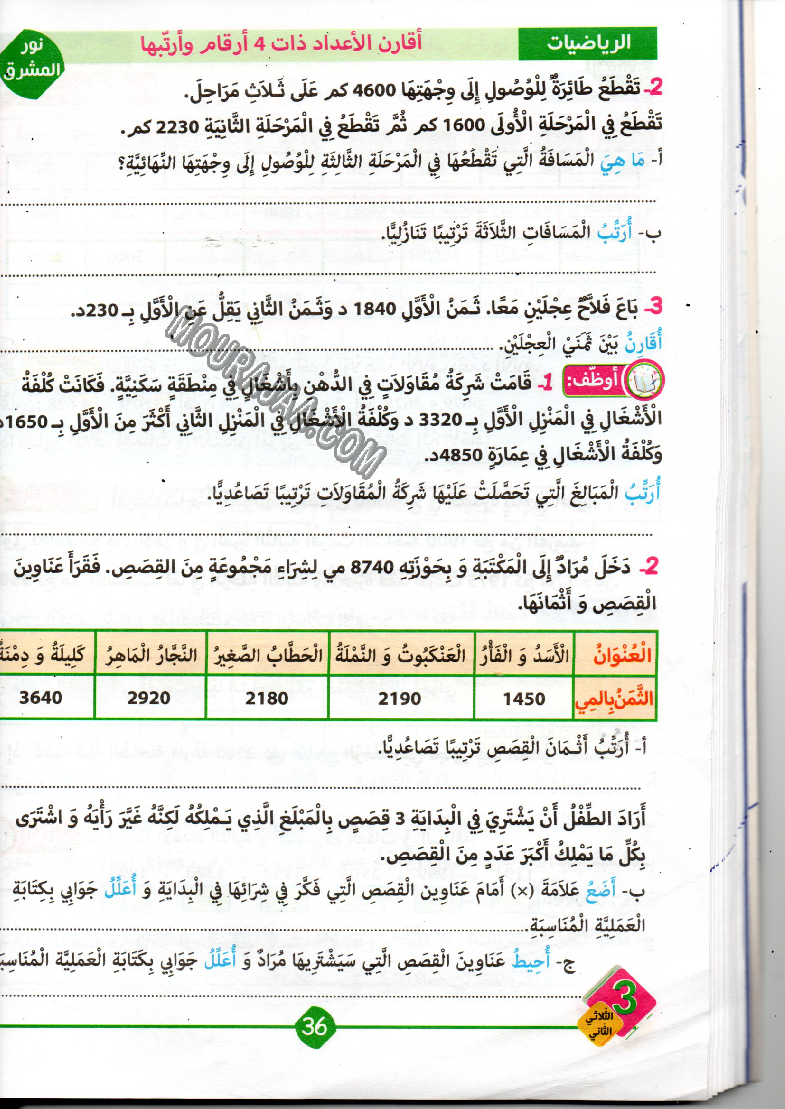 الرياضيات
أقارن الأعداد ذات 4 أرقام وأرتّبها
نور
المشرق
2- تَقْطَعُ طَائِرَةٌ لِلْوُصُولِ إِلَى وِجْهَتِهَا 4600 كم عَلَى ثَلَاثِ مَرَاحِلَ.
تَقْطَعُ فِي الْمَرْحَلَةِ الْأُولَى 1600 كم ثُمَّ تَقْطَعُ فِي الْمَرْحَلَةِ الثَّانِيَةِ 2230 كم.
أ- مَا هِيَ الْمَسَافَةُ الَّتِي تَقْطَعُهَا فِي الْمَرْحَلَةِ الثَّالِثَةِ لِلْوُصُولِ إِلَى وِجْهَتِهَا النِّهَائِيَّةِ؟
ب- أُرَتِّبُ الْمَسَافَاتِ الثَّلَاثَةَ تَرْتِيبًا تَنَازُلِيًّا.
3- بَاعَ فَلاَّحٌ عِجْلَيْنِ مَعًا. ثَمَنُ الْأَوَّلِ 1840 د وَثَمَنُ الثَّانِي يَقِلُّ عَنِ الْأَوَّلِ بِـ 230د.
أُقَارِنُ بَيْنَ ثَمَنَيْ الْعِجْلَيْنِ.
MOURAJAA.COM
أوظّف: 1- قَامَتْ شَرِكَةُ مُقَاوَلَاتٍ فِي الدُّهْنِ بِأَشْغَالٍ فِي مِنْطَقَةٍ سَكَنِيَّةٍ. فَكَانَتْ كُلْفَةُ
الْأَشْغَالِ فِي الْمَنْزِلِ الْأَوَّلِ بِـ 3320 د وَكُلْفَةُ الْأَشْغَالِ فِي الْمَنْزِلِ الثَّانِي أَكْثَرَ مِنَ الْأَوَّلِ بِـ 1650د
وَكُلْفَةُ الْأَشْغَالِ فِي عِمَارَةٍ 4850د.
أُرَتِّبُ الْمَبَالِغَ الَّتِي تَحَصَّلَتْ عَلَيْهَا شَرِكَةُ الْمُقَاوَلَاتِ تَرْتِيبًا تَصَاعُدِيًّا.
2- دَخَلَ مُرَادٌ إِلَى الْمَكْتَبَةِ وَ بِحَوْزَتِهِ 8740 مي لِشِرَاءِ مَجْمُوعَةٍ مِنَ القِصَصِ. فَقَرَأَ عَنَاوِينَ
الْقِصَصِ وَ أَثْمَانَهَا.
الْعُنْوَانُ الْأَسَدُ وَ الْفَأْرُ الْعَنْكَبُوتُ وَ النَّمْلَةُ الْحَطَّابُ الصَّغِيرُ النَّجَّارُ الْمَاهِرُ كَلِيلَةُ وَ دِمْنَةُ
الثَّمَنُ بِالمِي 1450 2190 2180 2920 3640
أ- أُرَتِّبُ أَثْمَانَ الْقِصَصِ تَرْتِيبًا تَصَاعُدِيًّا.
أَرَادَ الطِّفْلُ أَنْ يَشْتَرِيَ فِي الْبِدَايَةِ 3 قِصَصٍ بِالْمَبْلَغِ الَّذِي يَمْلِكُهُ لَكِنَّهُ غَيَّرَ رَأْيَهُ وَ اشْتَرَى
بِكُلِّ مَا يَمْلِكُ أَكْبَرَ عَدَدٍ مِنَ الْقِصَصِ.
ب- أَضَعُ عَلَامَةَ (×) أَمَامَ عَنَاوِينِ الْقِصَصِ الَّتِي فَكَّرَ فِي شِرَائِهَا فِي الْبِدَايَةِ وَ أُعَلِّلُ جَوَابِي بِكِتَابَةِ
الْعَمَلِيَّةِ الْمُنَاسِبَةِ.
ج- أُحِيطُ عَنَاوِينَ الْقِصَصِ الَّتِي سَيَشْتَرِيهَا مُرَادٌ وَ أُعَلِّلُ جَوَابِي بِكِتَابَةِ الْعَمَلِيَّةِ الْمُنَاسِبَ
3
الثلاثي
الثاني
36